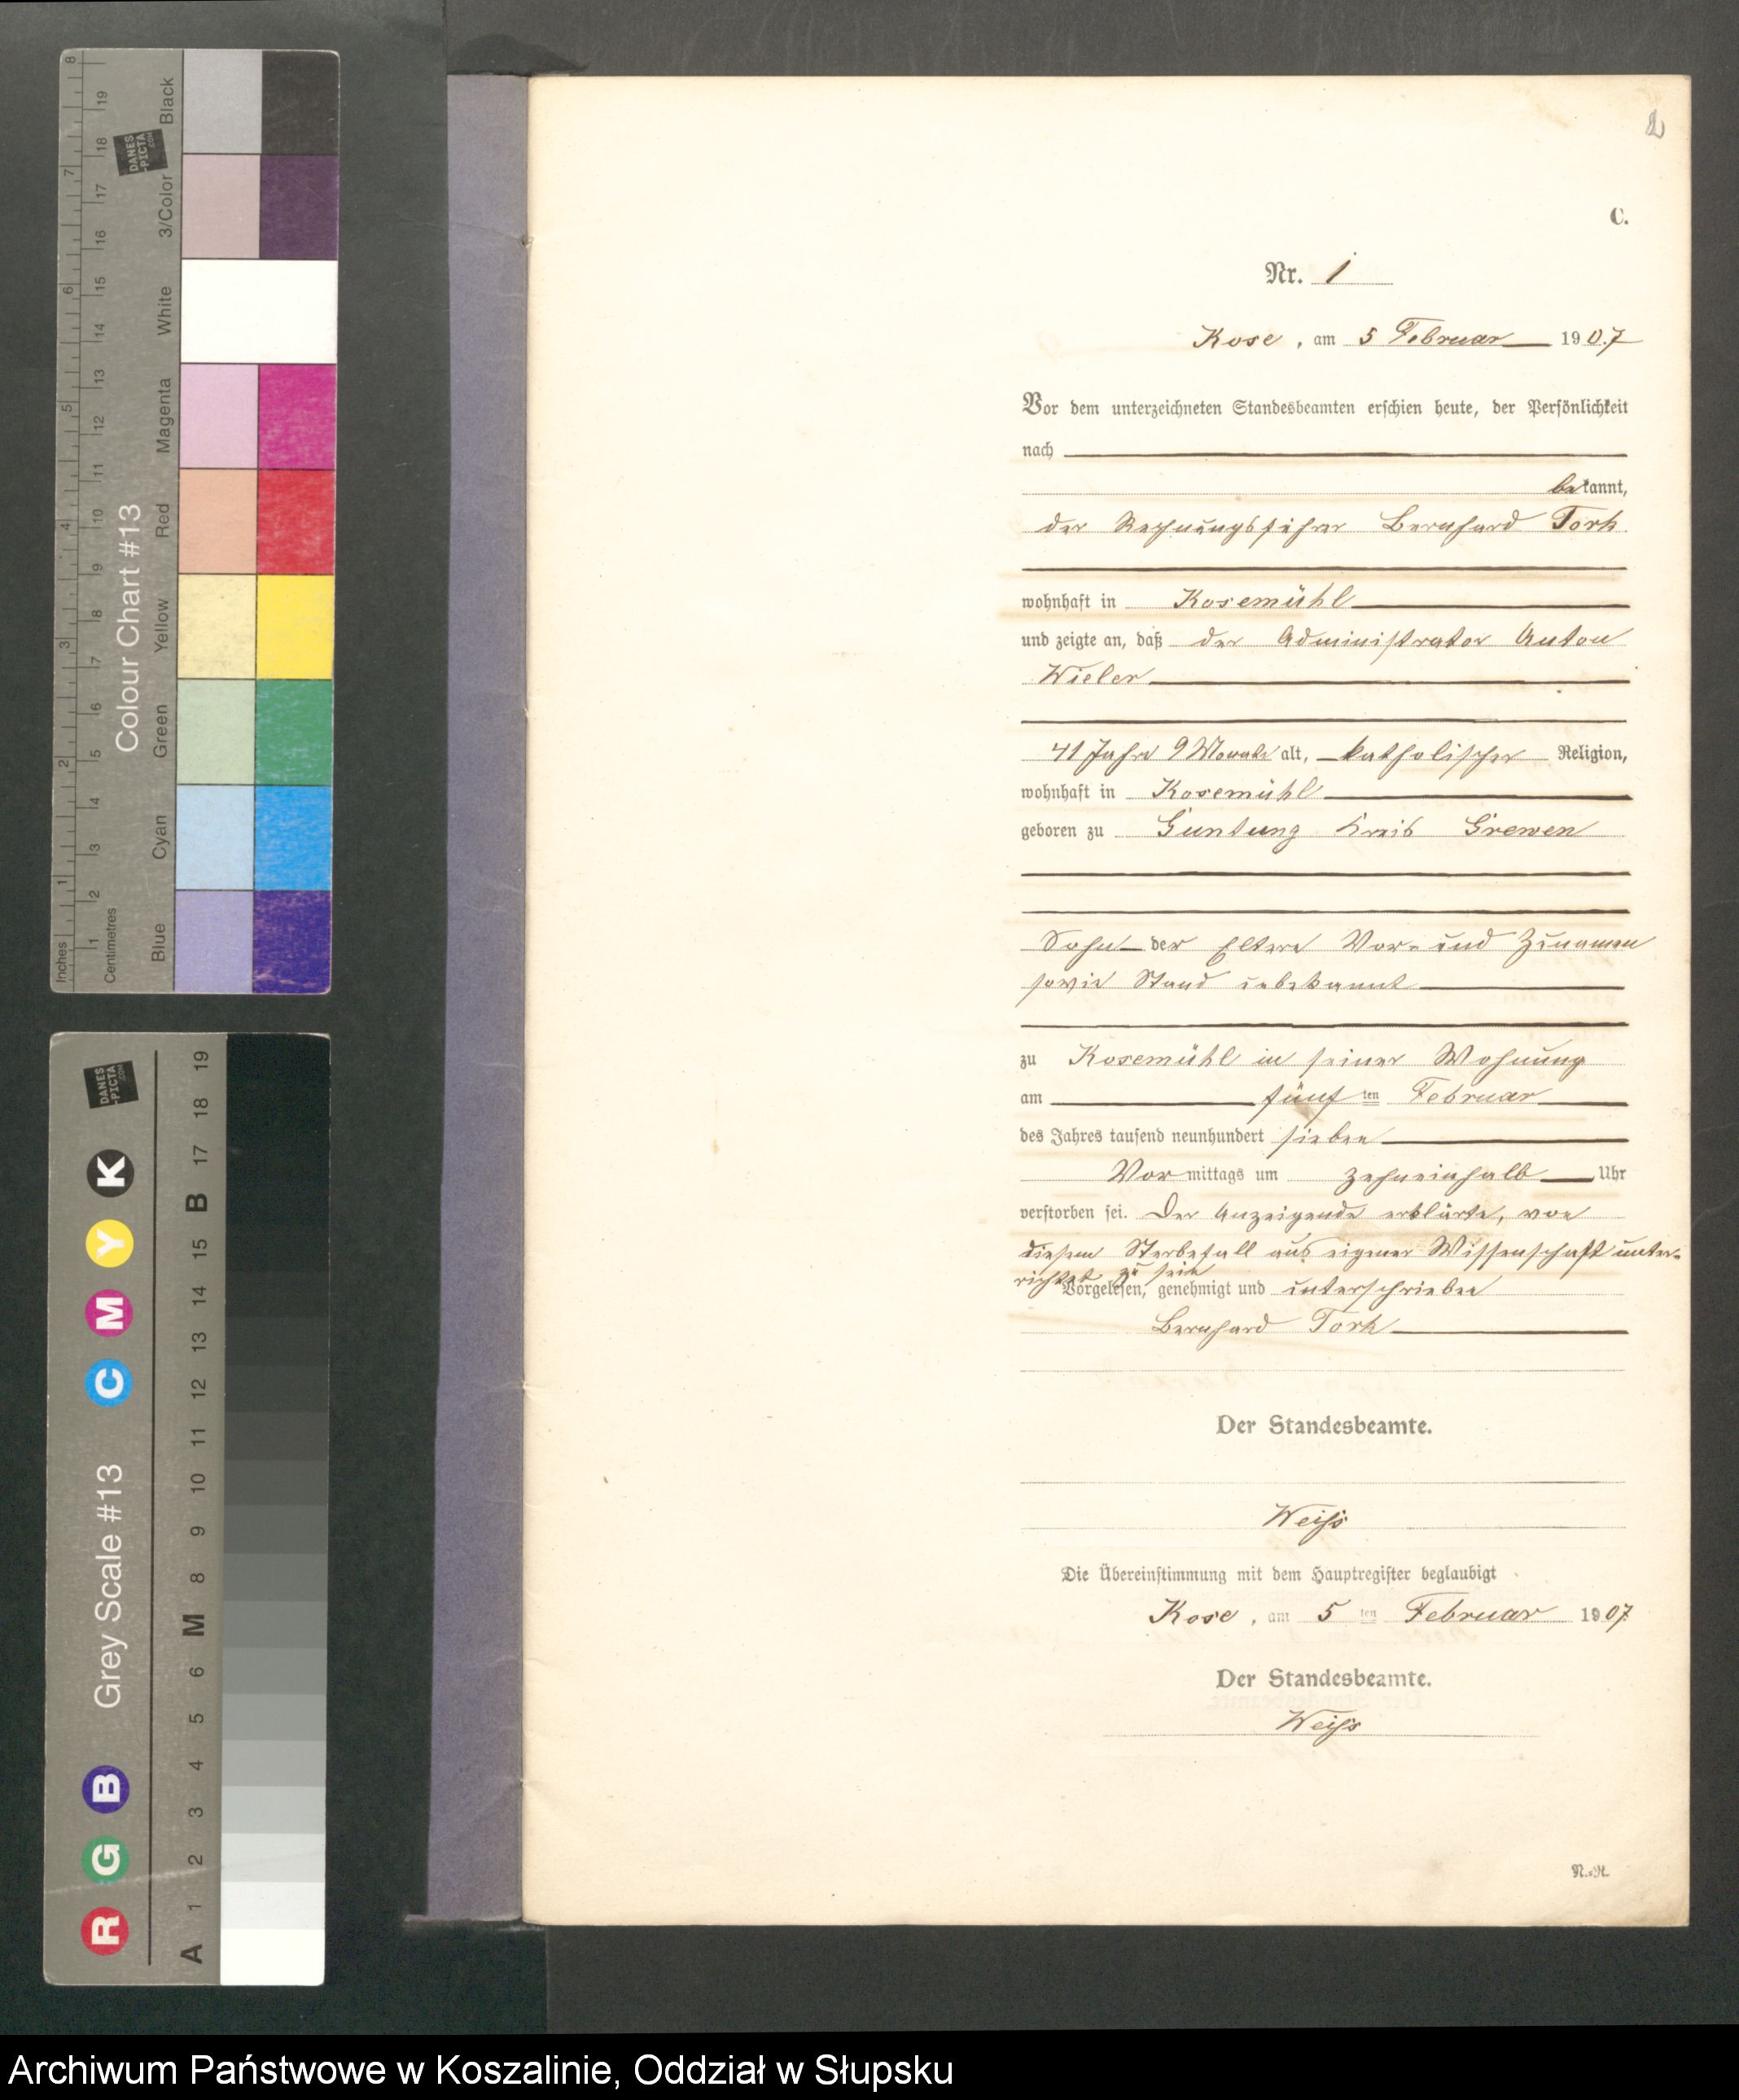 2
C.
Nr. 1
Kose, am 5 Februar 1907
Vor dem unterzeichneten Standesbeamten erschien heute, der Persönlichkeit
nach
bekannt,
der Rechnungsführer Bernhard Tork
wohnhaft in Kosemühl
und zeigte an, daß der Administrator Anton
Wieler
41 Jahre 9 Monate alt, katholischer Religion,
wohnhaft in Kosemühl
geboren zu Guntung Kreis Grewen
Sohn der Eltern Vor- und Zunamen
sowie Stand unbekannt
zu Kosemühl in seiner Wohnung
am fünf ten Februar
des Jahres tausend neunhundert sieben
Vormittags um zehneinhalb Uhr
verstorben sei. Der Anzeigende erklärte, von
diesem Sterbefall aus eigener Wissenschaft unter-
richtet zu sein
Vorgelesen, genehmigt und unterschrieben
Bernhard Tork
Der Standesbeamte.
Weiß
Die Übereinstimmung mit dem Hauptregister beglaubigt
Kose, am 5 ten Februar 1907
Der Standesbeamte.
Weiß
N.-R.
Colour Chart #13
Inches 1 2 3 4 5 6 7 8
Centimetres 1 2 3 4 5 6 7 8 9 10 11 12 13 14 15 16 17 18 19
Blue Cyan Green Yellow Red Magenta White 3/Color Black
DANES
-PICTA
.COM
Grey Scale #13
R G B C M Y K
A 1 2 3 4 5 6 M 8 9 10 11 12 13 14 15 B 17 18 19
DANES
-PICTA
.COM
Archiwum Państwowe w Koszalinie, Oddział w Słupsku